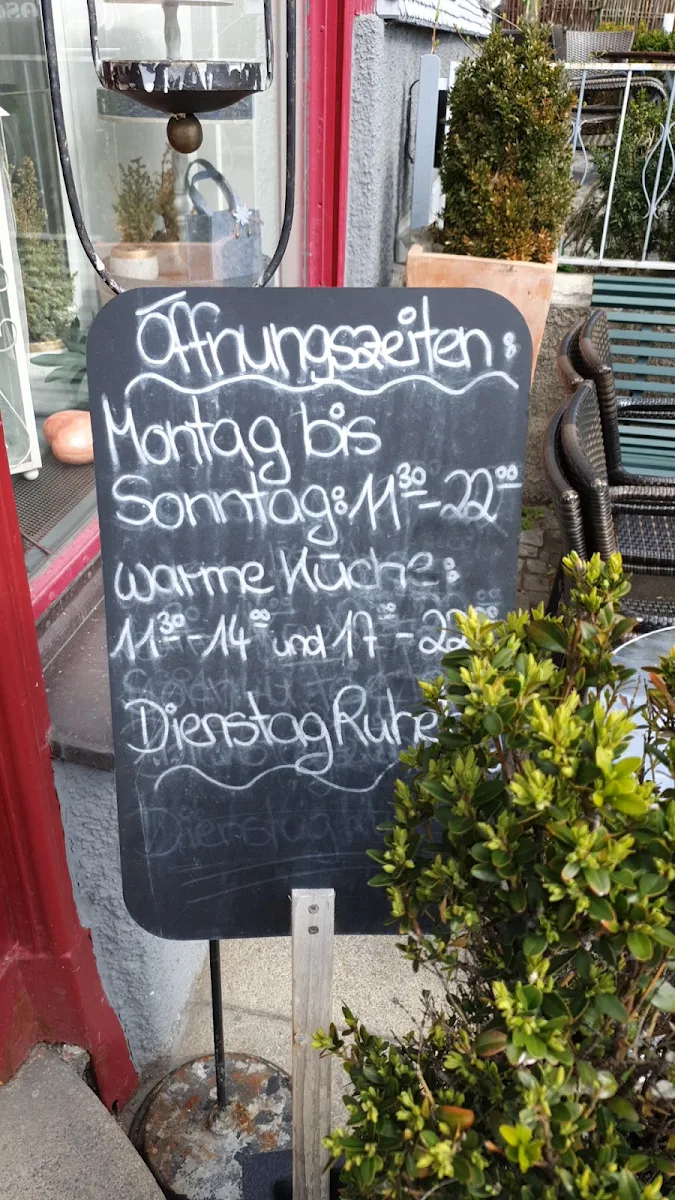 Öffnungszeiten:
Montag bis
Sonntag: 11³⁰-22⁰⁰
warme Küche:
11³⁰-14⁰⁰ und 17⁰⁰-22⁰⁰
Dienstag Ruhe